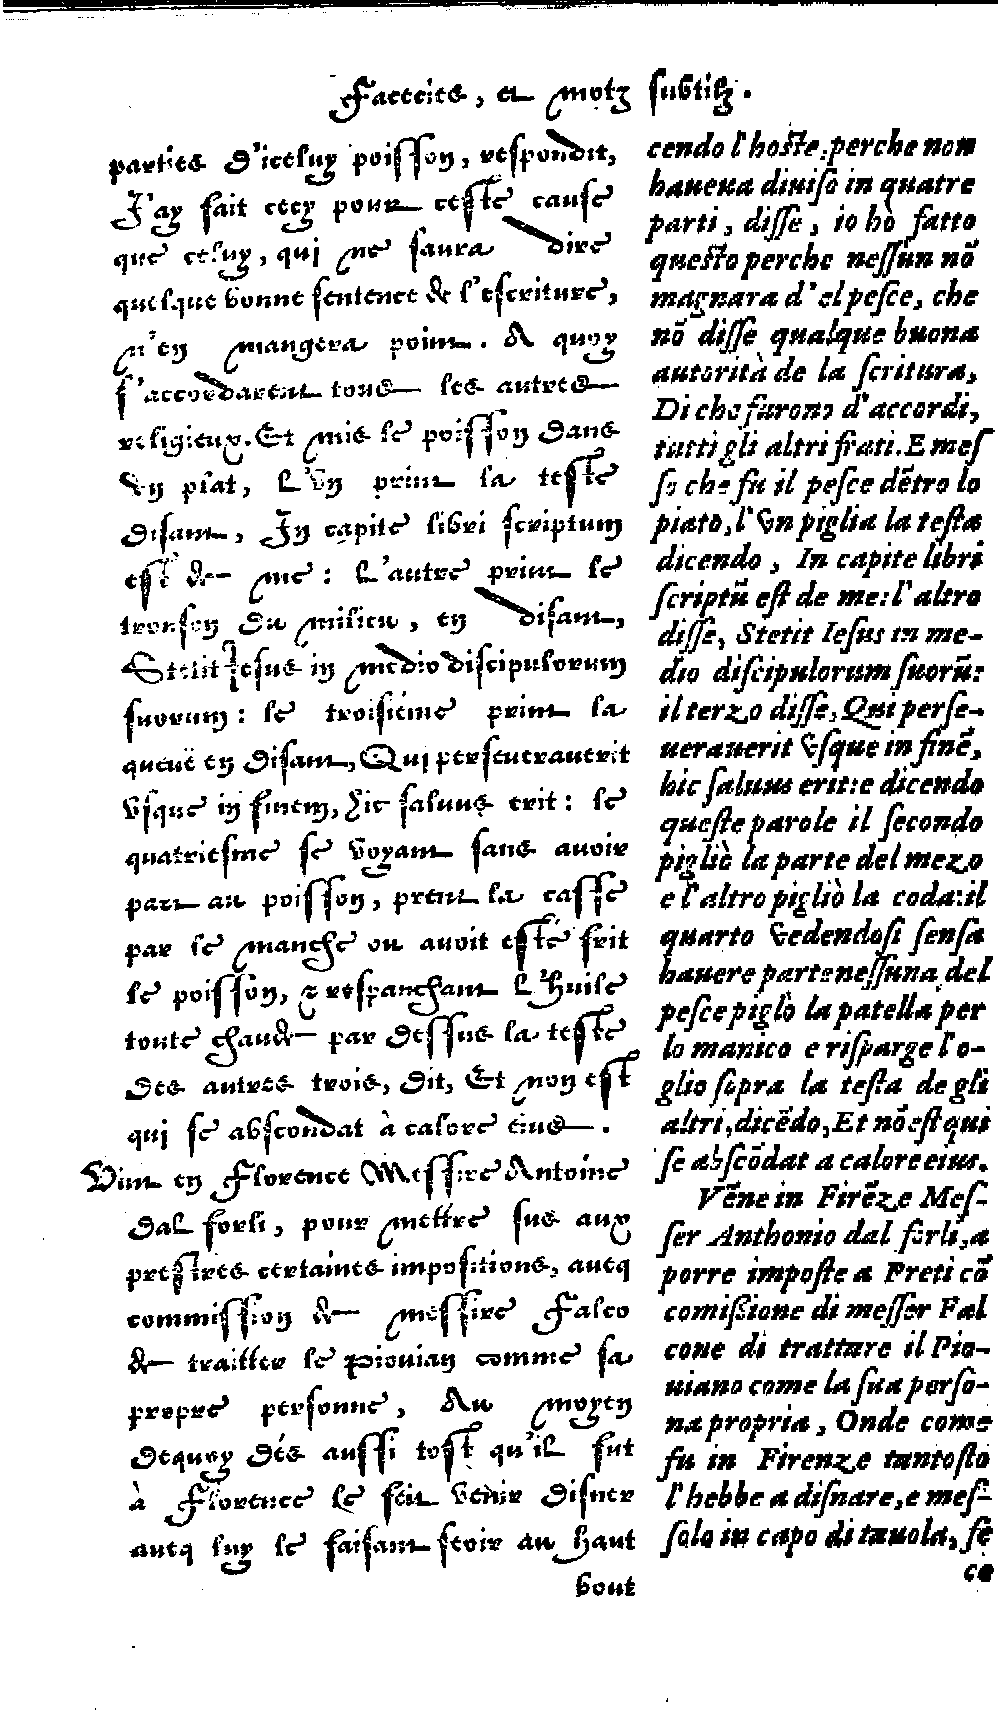 Facecies, et motz subtilz.
parties d'iceluy poisson, respondit,
J'ay fait cecy pour ceste cause
que celuy, qui ne saura dire
quelque bonne sentence de l'escriture,
n'en mangera point. A quoy
s'accordarent tous les autres
religieux. Et mis le poisson dans
vn plat, L'vn print la teste
disant, In capite libri scriptum
est de me: L'autre print le
tronson du milieu, en disant,
Stetit Jesus in medio discipulorum
suorum: le troisiéme print la
queuë en disant, Qui perseuerauerit
vsque in finem, hic saluus erit: le
quatriesme se voyant sans auoir
part au poisson, prent la casse
par le manche ou auoit esté frit
le poisson, & respanchant L'huile
toute chaude par dessus la teste
des autres trois, dit, Et non est
qui se abscondat à calore eius.
Vint en Florence Messire Antoine
dal forli, pour mettre sus aux
prestres certaines impositions, auecq
commission de messire Falco
de traitter le Piouian comme sa
propre personne, Au moyen
dequoy dés aussi tost qu'il fut
à Florence le feit venir disner
auecq luy le faisant seoir au haut
bout
cendo l'hoste: perche non
haueua diuiso in quatre
parti, disse, io hò fatto
questo perche nessun nō
magnara d'el pesce, che
nō disse qualque buona
autorità de la scritura,
Di che furono d'accordi,
tutti gli altri frati. E mes
so che fu il pesce dētro lo
piato, l'vn piglia la testa
dicendo, In capite libri
scriptū est de me: l'altro
disse, Stetit Iesus in me-
dio discipulorum suorū:
il terzo disse, Qui perse-
uerauerit vsque in finē,
hic saluus erit: e dicendo
queste parole il secondo
pigliò la parte del mezo
e l'altro pigliò la coda: il
quarto vedendosi sensa
hauere parte nessuna del
pesce piglò la patella per
lo manico e risparge l'o-
glio sopra la testa de gli
altri, dicēdo, Et nō est qui
se abscōdat a calore eius.
Vēne in Firēze Mes-
ser Anthonio dal forli, a
porre imposte a Preti cō
comißione di messer Fal
cone di trattare il Pio-
uiano come la sua perso-
na propria, Onde come
fu in Firenze tantosto
l'hebbe a disnare, e mes-
solo in capo di tauola, fè
ce